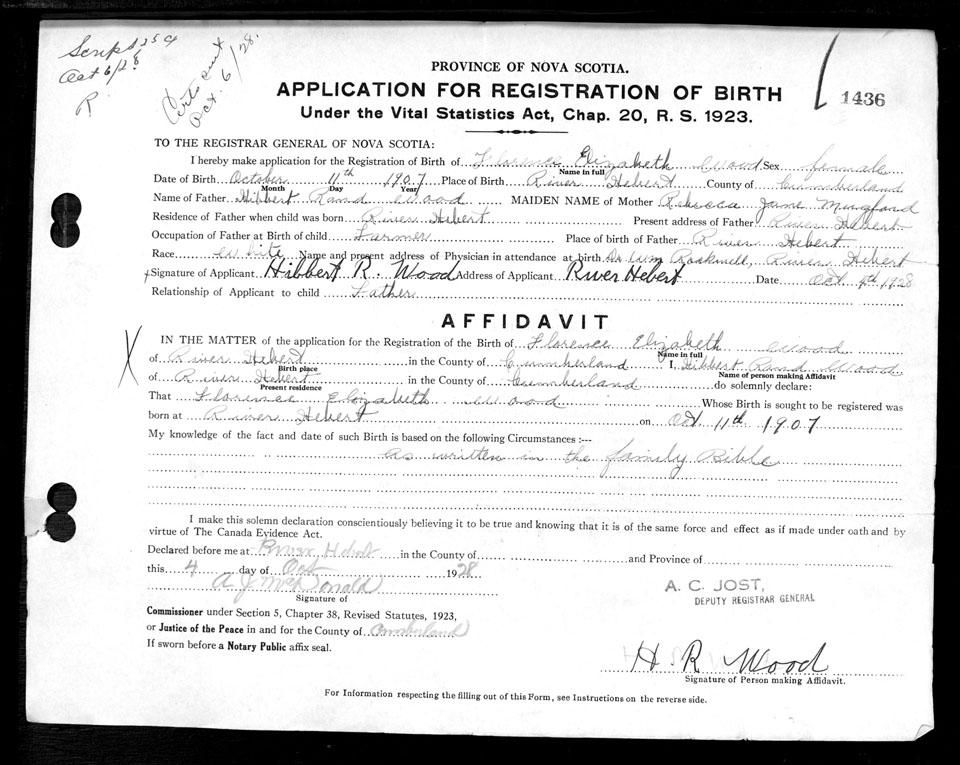 Script 25¢
Oct 6/28
R
Certs out
Oct. 6/28.
PROVINCE OF NOVA SCOTIA.
APPLICATION FOR REGISTRATION OF BIRTH
1436
Under the Vital Statistics Act, Chap. 20, R. S. 1923.
TO THE REGISTRAR GENERAL OF NOVA SCOTIA:
I hereby make application for the Registration of Birth of Florence Elizabeth Wood Sex female
Name in full
Date of Birth October 11th 1907 Place of Birth River Hebert County of Cumberland
Month Day Year
Name of Father Hibbert Rand Wood MAIDEN NAME of Mother Rebecca Jane
Residence of Father when child was born River Hebert Present address of Father River Hebert
Occupation of Father at Birth of child Farmer Place of birth of Father River Hebert
Race white Name and present address of Physician in attendance at birth Dr Rockwell, River Hebert
Signature of Applicant Hibbert R. Wood Address of Applicant River Hebert Date Oct 4th 1928
Relationship of Applicant to child Father
AFFIDAVIT
X IN THE MATTER of the application for the Registration of the Birth of Florence Elizabeth Wood
Name in full
of River Hebert in the County of Cumberland I, Hibbert Rand Wood
Birth place Name of person making Affidavit
of River Hebert in the County of Cumberland do solemnly declare:
Present residence
That Florence Elizabeth Wood Whose Birth is sought to be registered was
born at River Hebert on Oct 11th 1907
My knowledge of the fact and date of such Birth is based on the following Circumstances :---
as written in the family Bible
I make this solemn declaration conscientiously believing it to be true and knowing that it is of the same force and effect as if made under oath and by
virtue of The Canada Evidence Act.
Declared before me at River Hebert in the County of and Province of
this 4 day of Oct 1928
A J McDonald
Signature of
A. C. JOST,
DEPUTY REGISTRAR GENERAL
Commissioner under Section 5, Chapter 38, Revised Statutes, 1923,
or Justice of the Peace in and for the County of Cumberland
If sworn before a Notary Public affix seal.
H R Wood
Signature of Person making Affidavit.
For Information respecting the filling out of this Form, see Instructions on the reverse side.